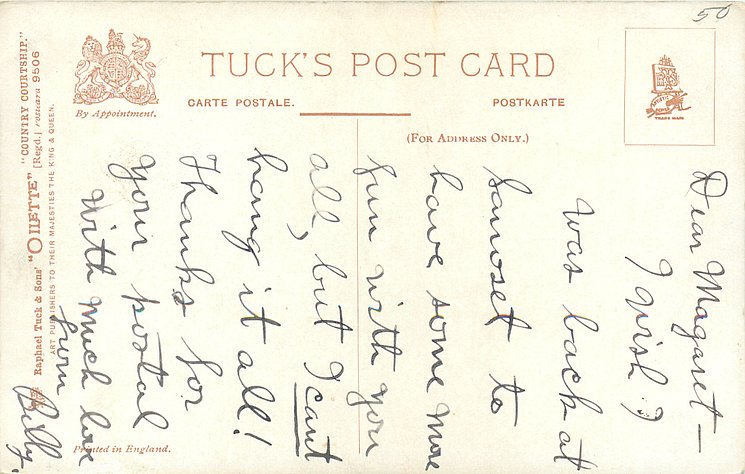 TUCK'S POST CARD
By Appointment.
CARTE POSTALE.
POSTKARTE
(FOR ADDRESS ONLY.)
TRADE MARK
50
"COUNTRY COURTSHIP."
Raphael Tuck & Sons' "OILETTE" [Regd.] Postcard 9506
ART PUBLISHERS TO THEIR MAJESTIES THE KING & QUEEN.
Printed in England.
Dear Magaret—
I wish I
was back at
Sawset to
have some more
fun with you
all, but I cant
hang it all!
Thanks for
your postal
With much love
from
Billy.